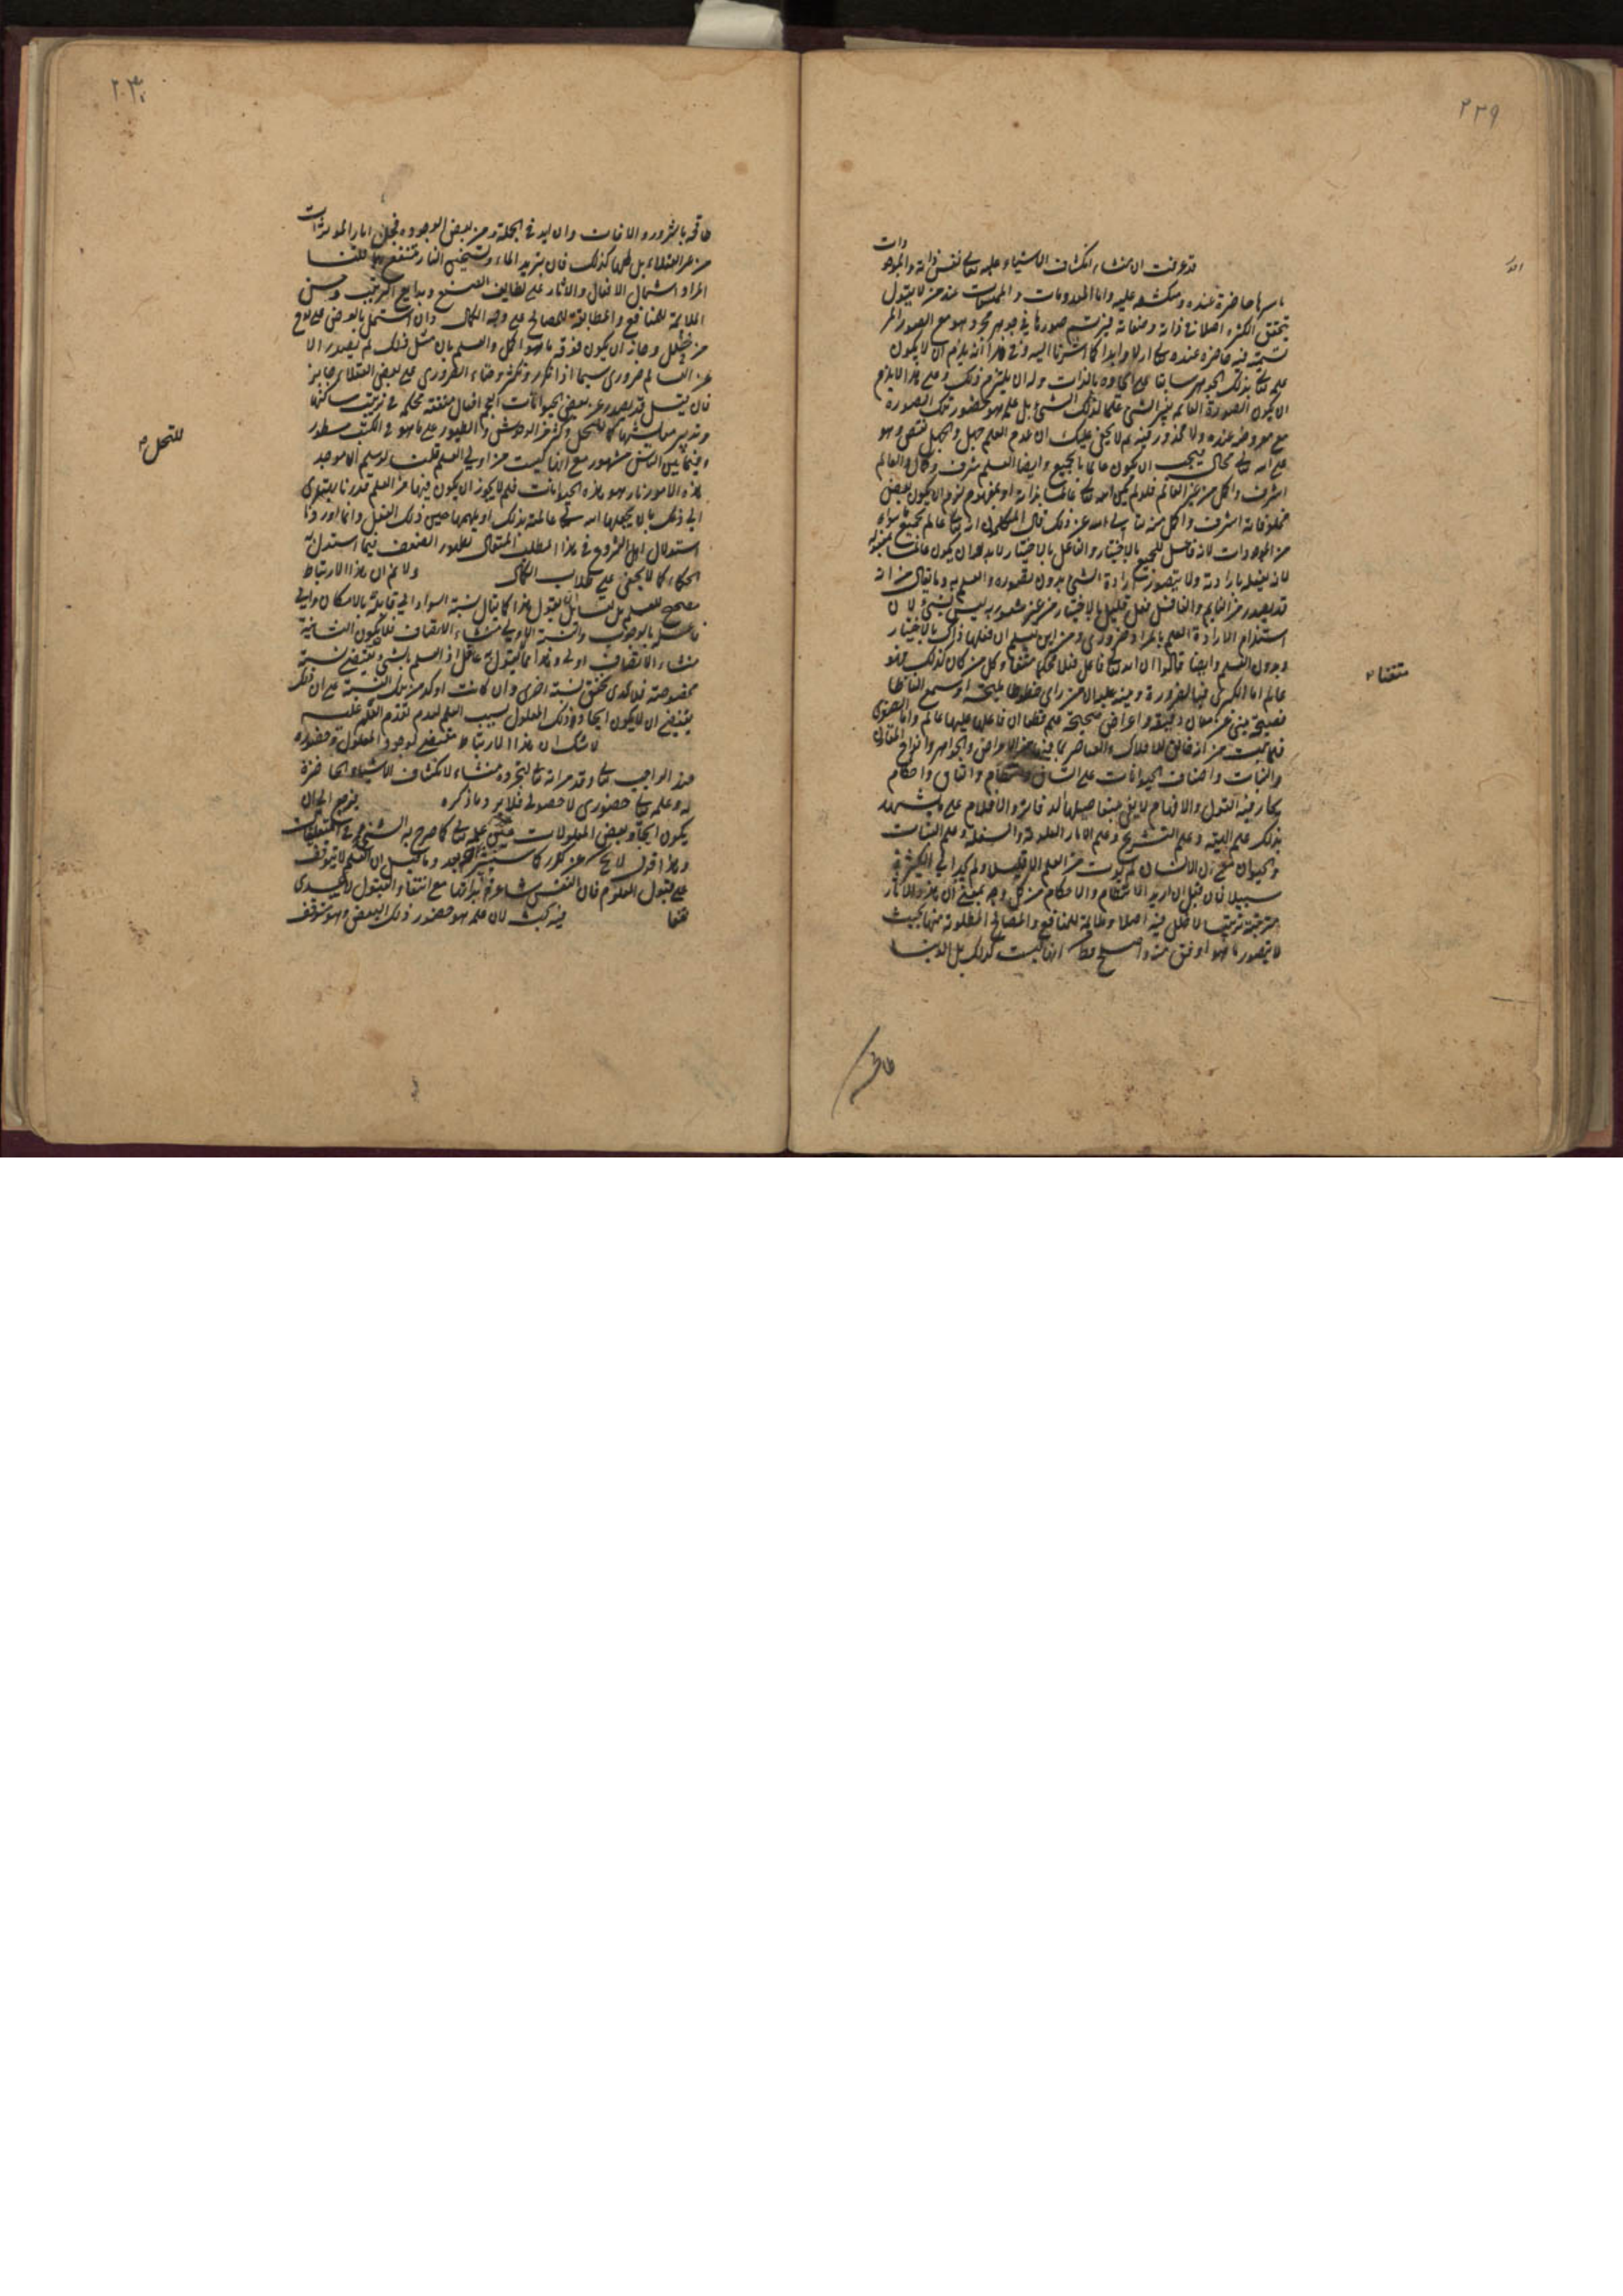 ٢٢٩
قد عرفت ان منشاء انكشاف الاشياء عليه تعالى نفس ذاته والموجودات
باسرها حاضرة عنده ومنكشفة عليه واما المعدومات و الممتنعات عند من لا يقول
بتحقق الكثرة اصلا في ذاته وصفاته فيرتسم صورها في جوهر مجرد وهو مع الصور المر
تسمة فيه حاضرة عنده تعالى ازلا وابدا كما اشرنا اليه وفي هذا انه يلزم ان لا يكون
علمه تعالى بذلك الجوهر سابقا على ايجاده بالذات وله ان يلتزم ذلك وعلى هذا لا يلزم
ان يكون الصورة القائمة بغير الشيء علما لذلك الشيء بل علمه هو حضور تلك الصورة
مع معروضه عنده ولا محذور فيه ثم لا يخفى عليك ان عدم العلم جهل والجهل نقص وهو
على الله تعالى محال فيجب ان يكون عالما بالجميع وايضا العلم شرف وكمال والعالم
اشرف واكمل من غير العالم فلو لم يكن الله تعالى عالما بذاته او بغيره لزم ان يكون بعض
مخلوقاته اشرف واكمل منه تعالى الله عن ذلك قال المتكلمون انه تعالى عالم بجميع ما سواه
من الموجودات لانه فاعل للجميع بالاختيار والفاعل بالاختيار لا بد ان يكون عالما بمفعوله
لانه يفعله بارادته ولا يتصور ارادة الشيء بدون تصوره والعلم به وما يقال من انه
قد يصدر من النائم والغافل فعل قليل بالاختيار من غير شعور به ليس بشيء لان
استلزام الارادة العلم بالمراد ضروري ومن اين يعلم ان فعلهما ذاك بالاختيار
وبدون العلم وايضا قالوا ان الله تعالى فاعل فعلا محكما متقنا وكل من كان كذلك فهو
متقنا
عالم اما الكبرى فبالضرورة وينبه عليه ان من راى خطوطا مليحة او سمع الفاظا
فصيحة ينبئ عن معان دقيقة واغراض صحيحة علم قطعا ان فاعلها عالم واما الصغرى
فلما ثبت من انه خالق للافلاك والعناصر بما فيها من الاعراض والجواهر وانواع المعادن
والنبات واصناف الحيوانات على اتساق وانتظام واتقان واحكام
يحار فيه العقول والافهام لا يفي بتفاصيلها الدفاتر والاقلام على ما يشهد
بذلك علم الهيئة وعلم التشريح وعلم الاثار العلوية والسفلية وعلم النبات
والحيوان مع ان الانسان لم يوت من العلم الا قليلا ولم يجد الى الكثير
سبيلا فان قيل ان اريد الانتظام والاحكام من كل وجه بمعنى ان هذه الاثار
مترتبة ترتيبا لا خلل فيه اصلا وملائمة للمنافع والمصالح المطلوبة منها بحيث
لا يتصور ما هو اوفق منه واصلح فظاهر انها ليست كذلك بل الدنيا
طافحة
٢٣٠
طافحة بالشرور والافات وان اريد في الجملة ومن بعض الوجوه فجل اثار المؤثرات
من غير العقلاء بل كلها كذلك فان تبريد الماء وتسخين النار تنتفع بها قلنا
المراد اشتمال الافعال والاثار على لطايف الصنع وبدايع الترتيب وحسن
الملائمة للمنافع والمطابقة للمصالح على وجه الكمال وان اشتمل بالعرض على نوع
من خلل وجاز ان يكون فوقه ما هو اكمل والعلم بان مثل ذلك لم يصدر الا
عن العالم ضروري سيما اذا تكرر وتكثر وخفاء الضروري على بعض العقلاء جايز
فان قيل قد يصدر عن بعض الحيوانات العجم افعال متقنة محكمة في ترتيب مساكنها
وتدبير معايشها كما للنحل وكثير من الوحوش والطيور على ما هو في الكتب مسطور
للنحل
وفيما بين الناس مشهور مع انها ليست من اولي العلم قلت لو سلم ان موجد
هذه الامور نار هو هذه الحيوانات فلم لا يجوز ان يكون فيها من العلم قدر ما يهتدى
الى ذلك بان يجعلها الله تعالى عالمة بذلك او يلهمها حين ذلك الفعل وانما اوردنا
استدلال اهل الشروع في هذا المطلب المتعال لظهور الضعف فيما استدل به
الحكماء كما لا يخفى على طلاب الكمال ولا نم ان هذا الارتباط
مصحح للعلم بل لقائل ان يقول هذا كما يقال نسبة السواد الى قابله بالامكان والى
فاعله بالوجوب والنسبة الاولى منشاء الاتصاف فلا يكون الثانية
منشاء الاتصاف اولى وهذا مما لا يقول به عاقل اذ العلم بالشيء يقتضي نسبة
مخصوصة فلا يجدى تحقق نسبة اخرى وان كانت اوكد من تلك النسبة على ان ذلك
يقتضي ان لا يكون ايجاده ذلك المعلول بسبب العلم لعدم تقدم العلم عليه
لا شك ان هذا الارتباط مقتضى لوجود المعلول وحضوره
عند الواجب تعالى وقد مر انه تعالى لتجرده منشاء لانكشاف الاشياء الحاضرة
له وعلمه تعالى حضوري لا حصولي فلا يرد ما ذكره يرجع الى ان
يكون ايجاد بعض المعلولات عين علمه تعالى كما صرح به الشيخ في التعليقات
وهذا قول لا يخ عن تكرر كما سيشير اليه بعد وما قيل ان العلم لا يتوقف
على قبول المعلوم فان النفس شاعرة بذاتها مع انتفاء القبول لا يجدى
نفعا فيه بحث لان علمه هو حضور ذلك البعض وهو متوقف